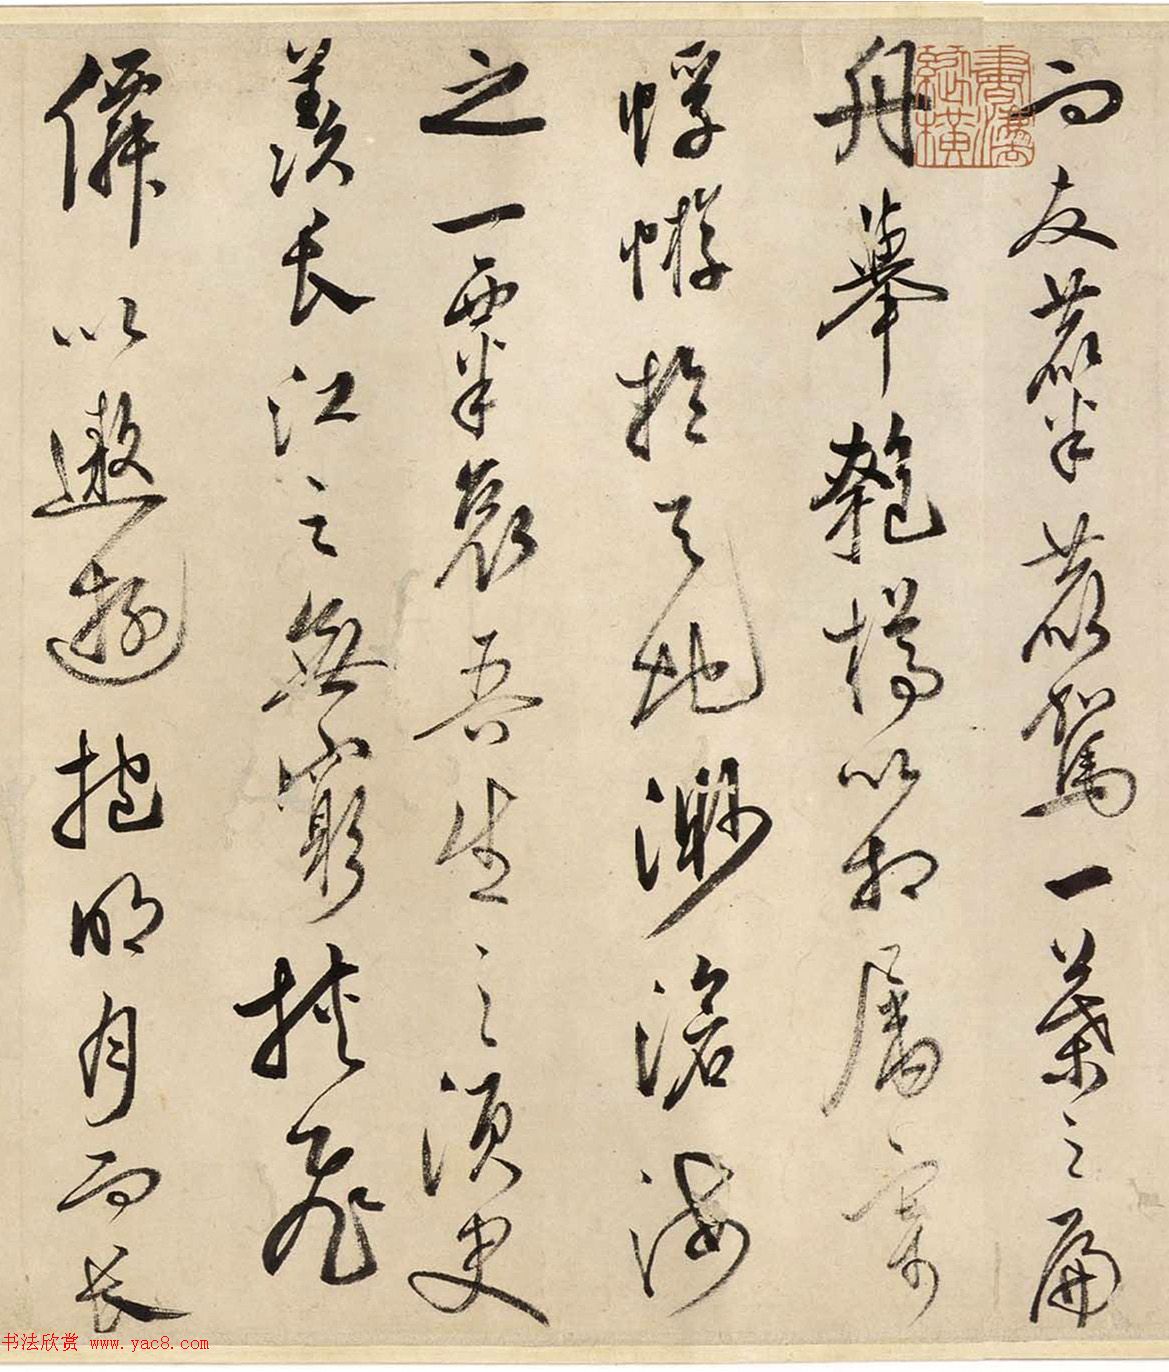 而友麋鹿駕一葉之扁
舟舉匏樽以相屬寄
蜉蝣於天地渺滄海
之一粟哀吾生之須臾
羨長江之無窮挾飛
僊以遨遊抱明月而長
書法縱橫
书法欣赏 www.yac8.com